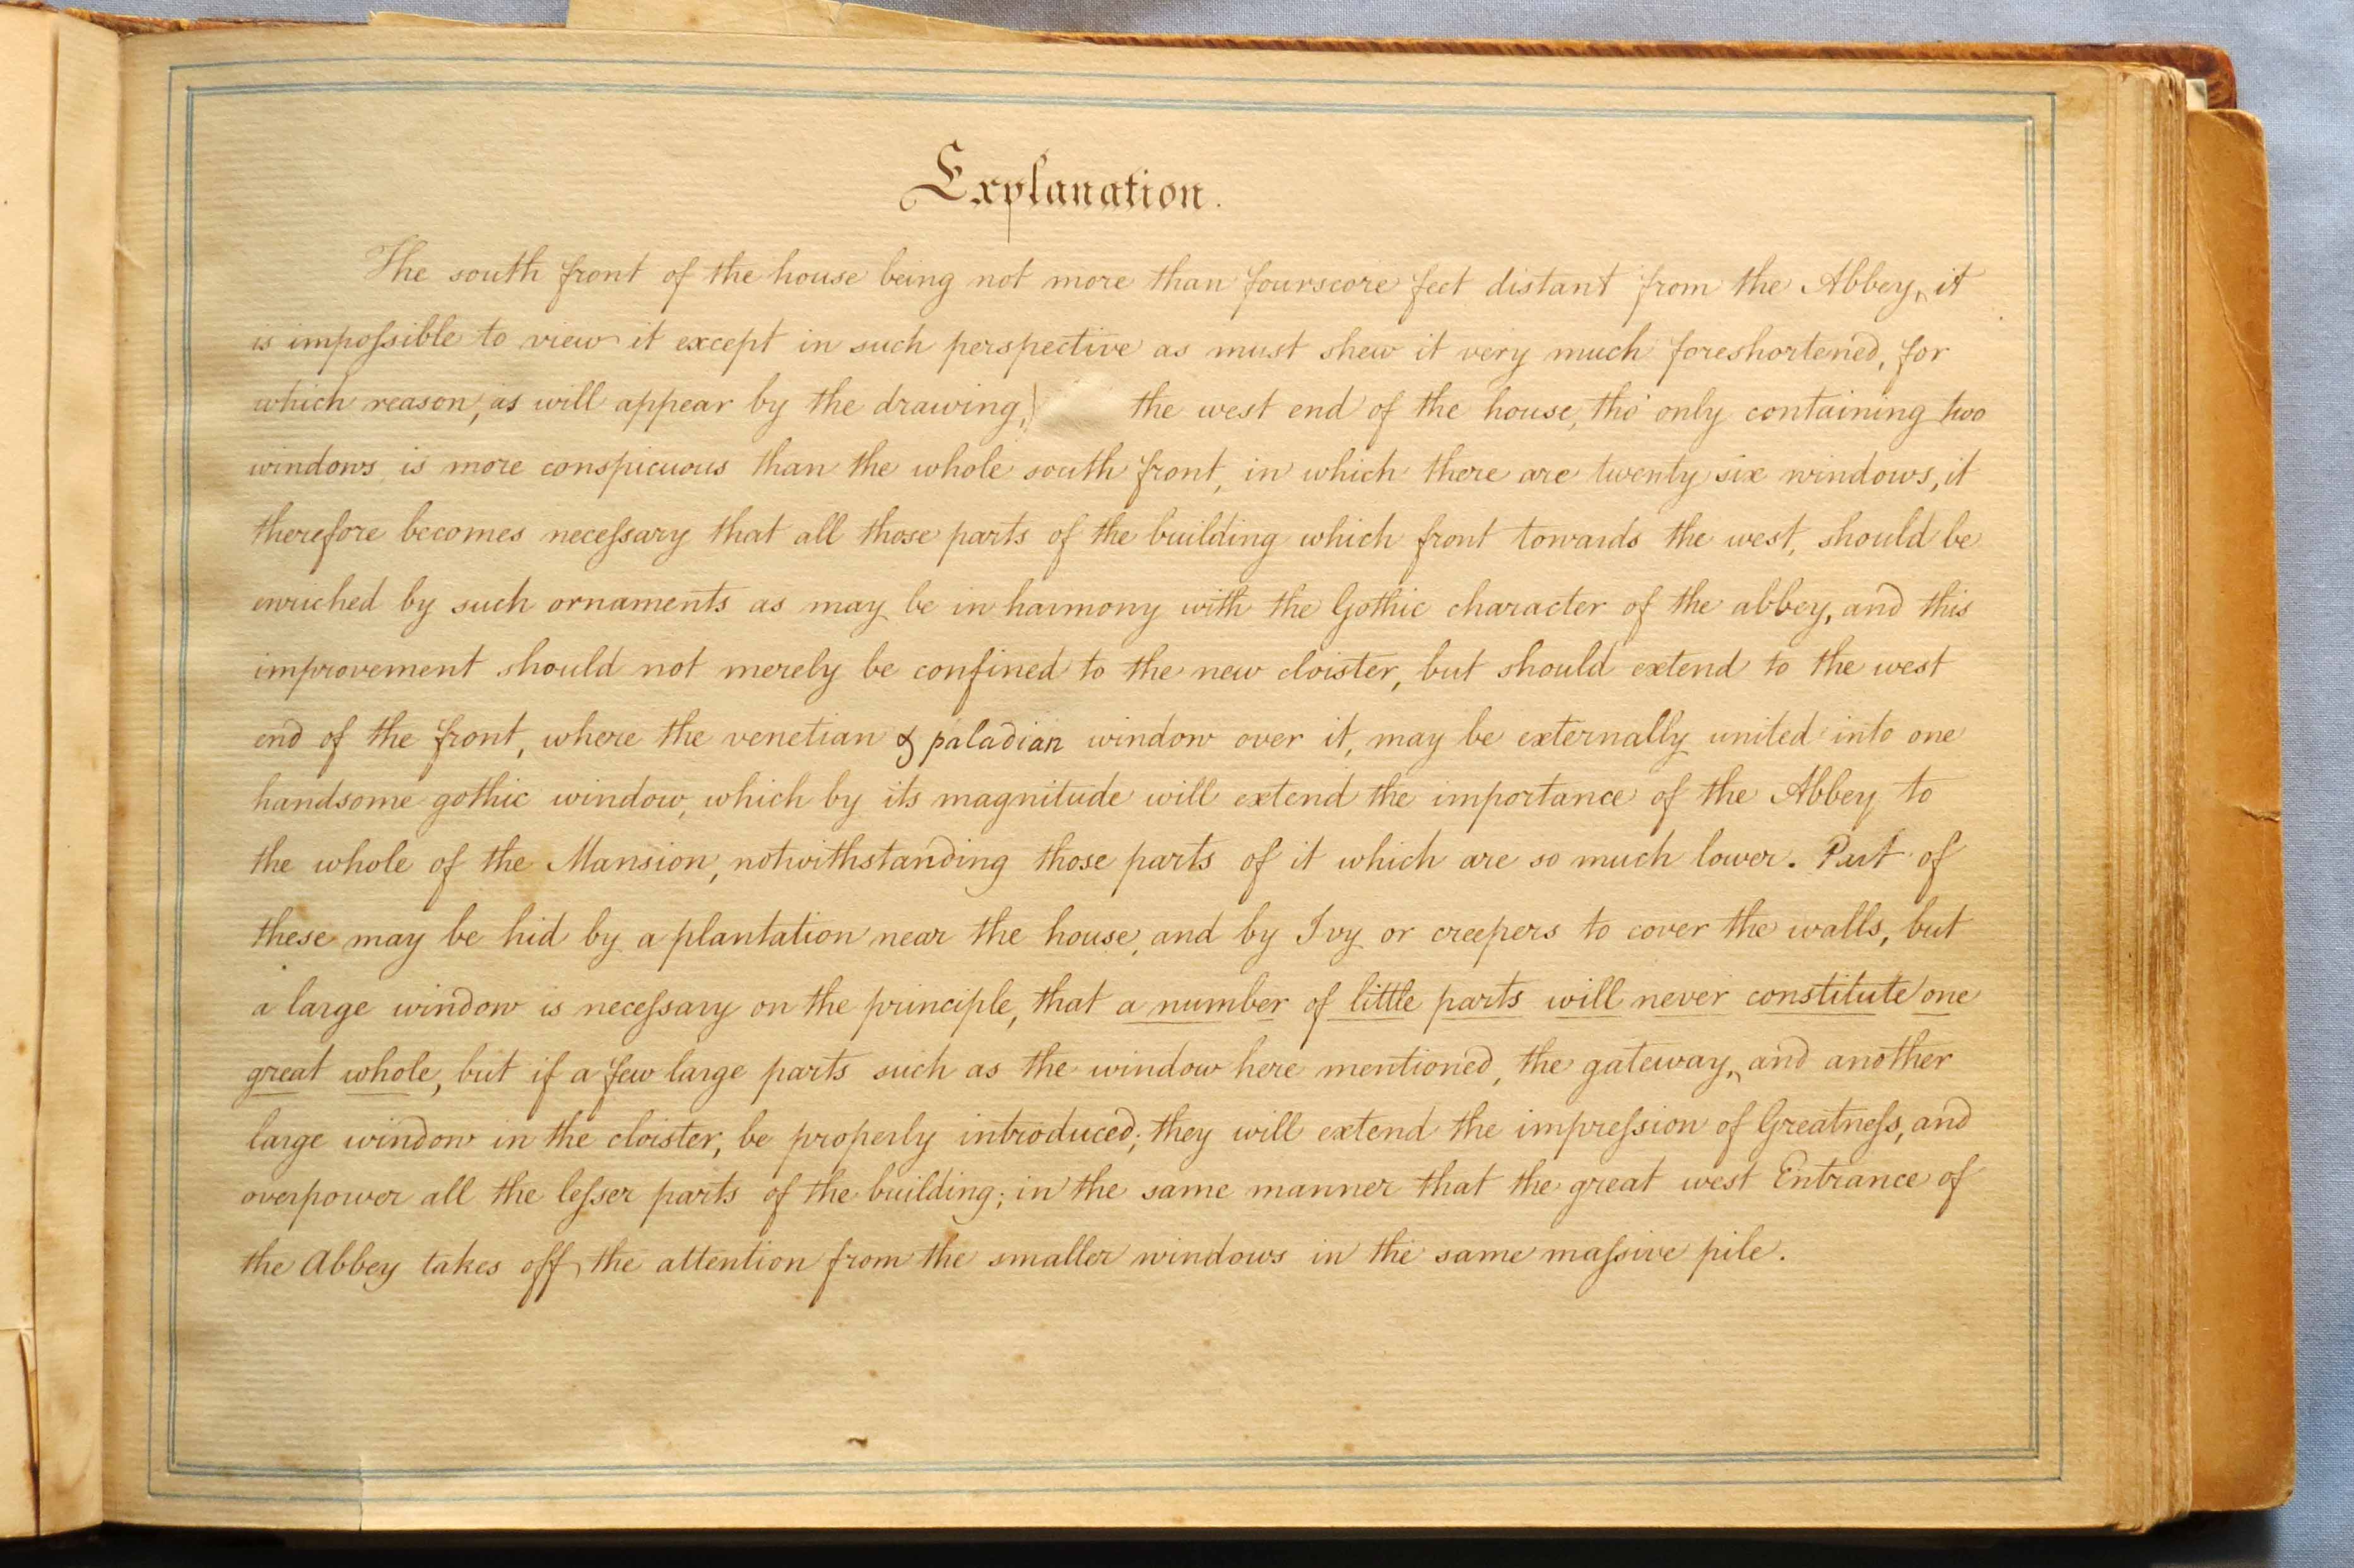 Explanation.
The south front of the house being not more than fourscore feet distant from the Abbey, it
is impoſsible to view it except in such perspective as must shew it very much foreshortened, for
which reason, as will appear by the drawing, the west end of the house, tho' only containing two
windows, is more conspicuous than the whole south front, in which there are twenty six windows, it
therefore becomes neceſsary that all those parts of the building which front towards the west, should be
enriched by such ornaments as may be in harmony with the Gothic character of the abbey, and this
improvement should not merely be confined to the new cloister, but should extend to the west
end of the front, where the venetian & paladian window over it, may be externally united into one
handsome gothic window, which by its magnitude will extend the importance of the Abbey to
the whole of the Mansion, notwithstanding those parts of it which are so much lower. Part of
these may be hid by a plantation near the house, and by Ivy or creepers to cover the walls, but
a large window is neceſsary on the principle, that a number of little parts will never constitute one
great whole, but if a few large parts such as the window here mentioned, the gateway, and another
large window in the cloister, be properly introduced; they will extend the impreſsion of Greatneſs, and
overpower all the leſser parts of the building; in the same manner that the great west Entrance of
the Abbey takes off the attention from the smaller windows in the same maſsive pile.